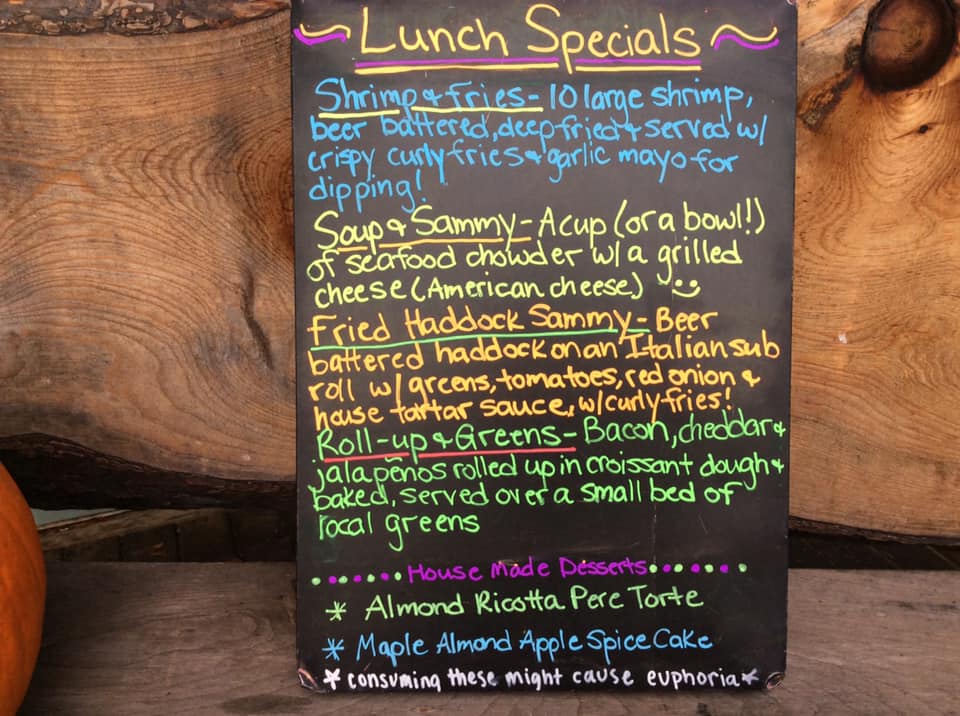 ~Lunch Specials~
Shrimp & Fries- 10 large shrimp,
beer battered, deep fried & served w/
crispy curly fries & garlic mayo for
dipping!
Soup & Sammy- A cup (or a bowl!)
of seafood chowder w/ a grilled
cheese (American cheese) :)
Fried Haddock Sammy- Beer
battered haddock on an Italian sub
roll w/ greens, tomatoes, red onion &
house tartar sauce, w/ curly fries!
Roll-up & Greens- Bacon, cheddar &
jalapeños rolled up in croissant dough &
baked, served over a small bed of
local greens
House Made Desserts
* Almond Ricotta Pere Torte
* Maple Almond Apple Spice Cake
*consuming these might cause euphoria*